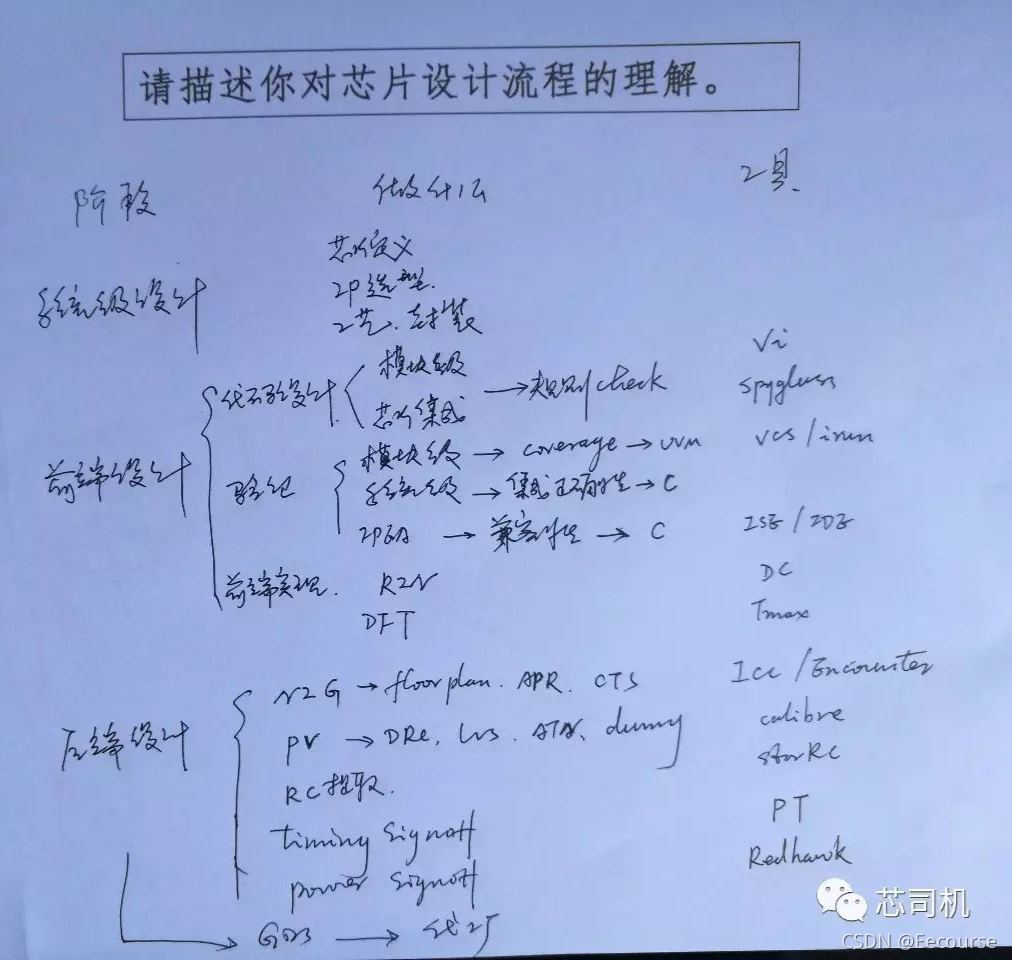 请描述你对芯片设计流程的理解。
阶段 做什么 工具
芯片定义
系统级设计 IP选型.
工艺.封装
模块级 Vi
代码设计. →规则check spyglass
芯片集成
前端设计 模块级 → coverage → UVM vcs/irun
验证 系统级 → 集成正确性 → C
FPGA → 兼容性 → C ISE/IDE
前端实现. R2N DC
DFT Tmax
N2G → floorplan. APR. CTS Icc/Encounter
后端设计 PV → DRC, LVS. dummy calibre
RC提取. starRC
timing signoff PT
power signoff Redhawk
GDS → 代工厂
芯司机
CSDN @Eecourse